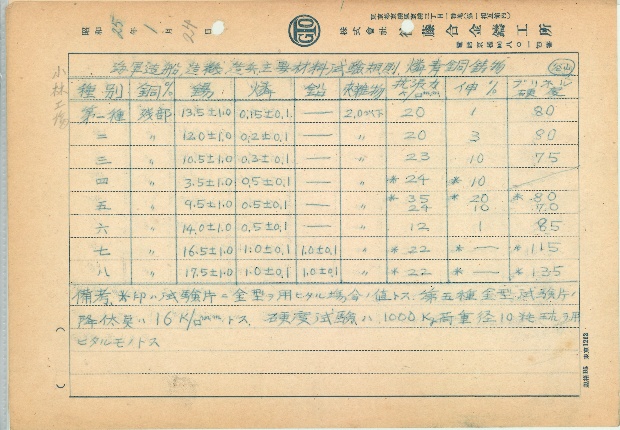 昭和25年1月24日
GIO
株式會社 藤合金鑄工所
小林工場
海軍造船造機造兵主要材料試験規則 燐青銅鋳物
種別 銅% 錫% 燐% 鉛 雑物 抗張力 伸% ブリネル硬度
第一種 残部 13.5±1.0 0.15±0.1 — 2.0以下 20 1 80
二 〃 12.0±1.0 0.2±0.1 — 〃 20 3 80
三 〃 10.5±1.0 0.3±0.1 — 〃 23 10 75
四 〃 3.5±1.0 0.5±0.1 — 〃 *24 *10
五 〃 9.5±1.0 0.5±0.1 — 〃 *35 *20 *80
24 10 70
六 〃 14.0±1.0 0.5±0.1 — 〃 12 1 85
七 〃 16.5±1.0 1.0±0.1 1.0±0.1 〃 *22 *— *115
八 〃 17.5±1.0 1.0±0.1 1.0±0.1 〃 *22 *— *135
備考 *印ハ試験片ニ金型ヲ用ヒタル場合ノ値トス 第五種金型試験片ノ
降伏点ハ16K/□mmトス 硬度試験ハ1000Kg荷重径10粍球ヲ用
ヒタルモノトス